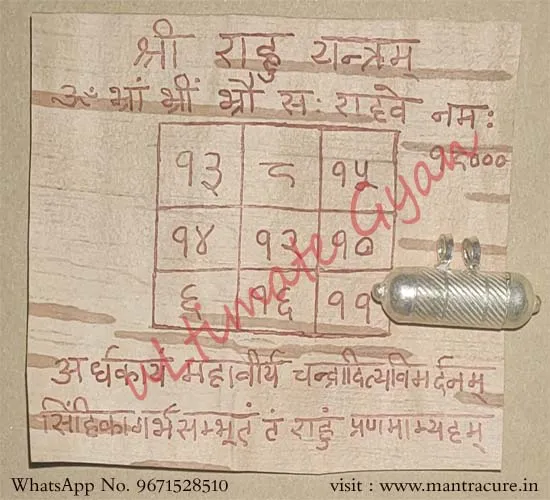 श्री राहु यन्त्रम्
ॐ भ्रां भ्रीं भ्रौं सः राहवे नमः
१८०००
१३ ८ १५
१४ १२ १०
९ १६ ११
Ultimate Gyan
अर्धकायं महावीर्यं चन्द्रादित्यविमर्दनम्
सिंहिकागर्भसम्भूतं तं राहुं प्रणमाम्यहम्
WhatsApp No. 9671528510 visit : www.mantracure.in